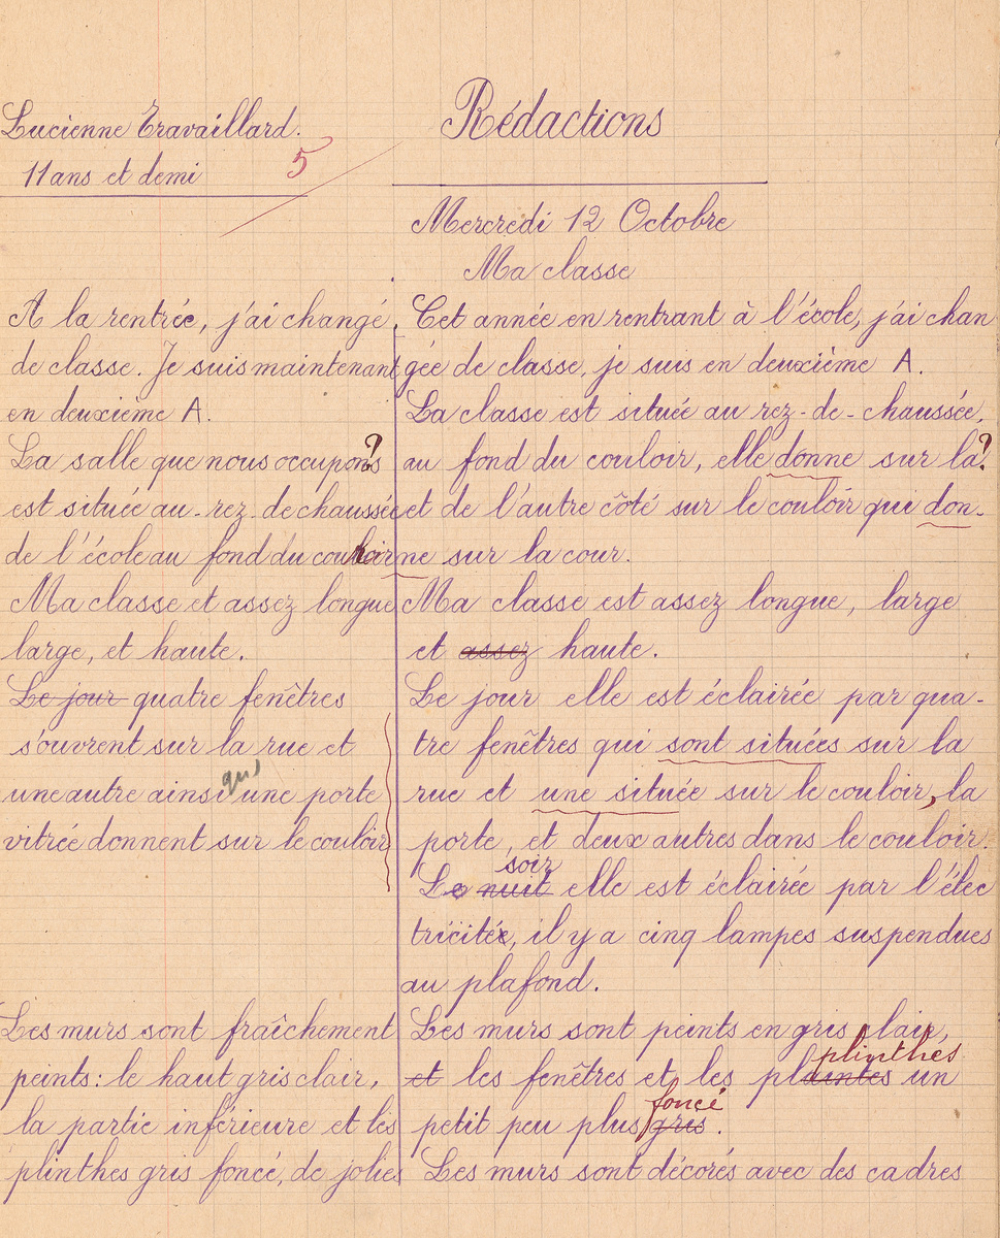 Lucienne Travaillard.
11 ans et demi
5
Rédactions
Mercredi 12 Octobre
Ma classe
A la rentrée, j'ai changé
de classe. Je suis maintenant
en deuxième A.
La salle que nous occupons ?
est située au-rez-de chaussée
de l'école au fond du couloir
Ma classe et assez longue
large, et haute.
Le jour quatre fenêtres
s'ouvrent sur la rue et
une autre ainsi que une porte
vitrée donnent sur le couloir
Les murs sont fraîchement
peints : le haut gris clair,
la partie inférieure et les
plinthes gris foncé, de jolies
Cet année en rentrant à l'école, j'ai chan
gée de classe, je suis en deuxième A.
La classe est située au rez-de-chaussée,
au fond du couloir, elle donne sur la ?
et de l'autre côté sur le couloir qui don-
ne sur la cour.
Ma classe est assez longue, large
et assez haute.
Le jour elle est éclairée par qua-
tre fenêtres qui sont situées sur la
rue et une située sur le couloir, la
porte, et deux autres dans le couloir.
soir
Le nuit elle est éclairée par l'élec
tricité, il y a cinq lampes suspendues
au plafond.
Les murs sont peints en gris clair,
plinthes
et les fenêtres et les plaintes un
foncé
petit peu plus gris.
Les murs sont décorés avec des cadres